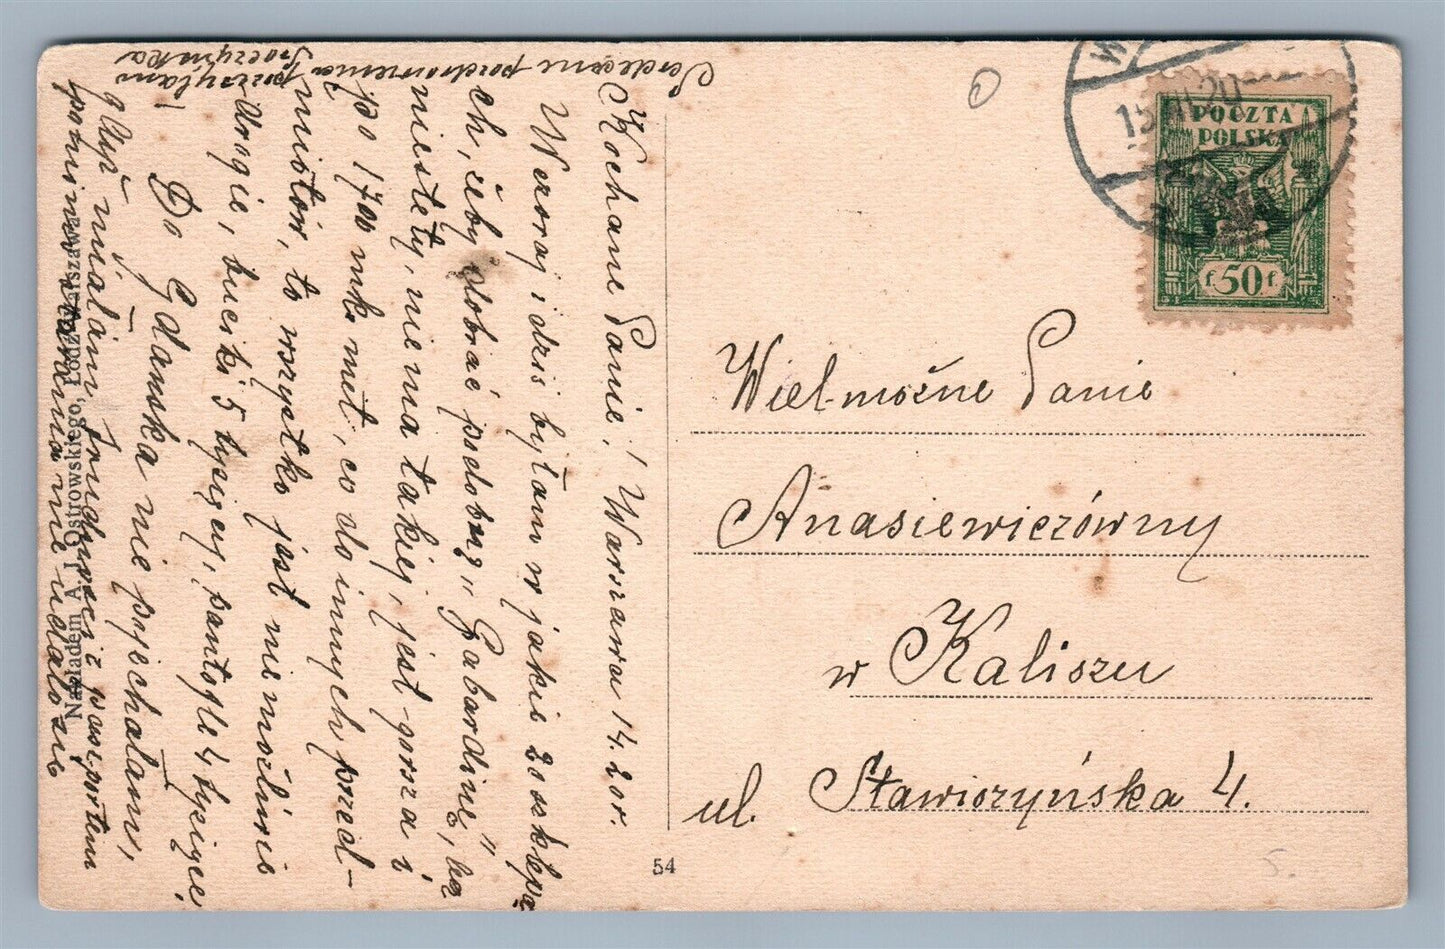 Kochane Panie! Warszawa 14. 20r.
Wczoraj i dziś byłam w jakie 20 sklepa
ch, żeby dobrać podobną „Gabardinę", lecz
niestety, nie ma takiej, jest gorsza i
po 1700 mk. met, co do innych przed-
miotów, to wszystko jest niemożliwie
drogie, buciki 5 tysięcy, pantofle 4 tysiące!
Do Gdańska nie pojechałam,
gdyż miałam trudności z paszportem
pomimo starania nie udało się
Serdeczne pozdrowienia
przesyłam
Nakładem A. J. Ostrowskiego, Łódź-Warszawa
54
15 VII 20
POCZTA
POLSKA
f 50 f
Wielmożne Panie
Anasiewiczówny
w Kaliszu
ul. Stawiszyńska 4.